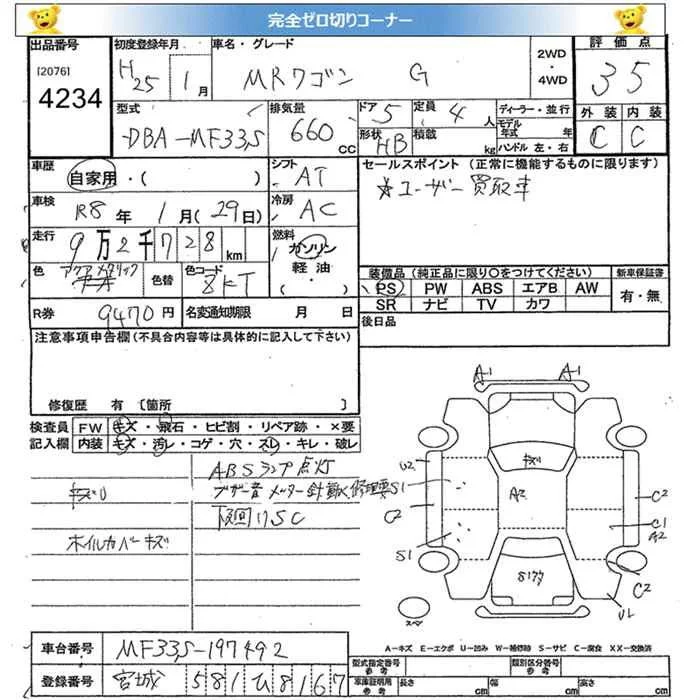 完全ゼロ切りコーナー
出品番号 [2076] 4234
初度登録年月 H25年 1月
車名・グレード MRワゴン G
2WD・4WD
評価点 35
型式 DBA-MF33S
排気量 660 cc
ドア 5
形状 HB
定員 4人
積載 kg
ディーラー・並行
モデル年式 年
ハンドル 左・右
外装 C 内装 C
車歴 自家用・( )
シフト AT
セールスポイント (正常に機能するものに限ります)
☆ユーザー買取車
車検 R8年 1月(29日)
冷房 AC
走行 9万2千728km
燃料 ガソリン 軽油・( )
色 アクアメタリック
色替
色コード
装備品(純正品に限り〇をつけてください)
PS PW ABS エアB AW
SR ナビ TV カワ
新車保証書 有・無
R券 9470円
名変通知期限 月 日
後日品
注意事項申告欄(不具合内容等は具体的に記入して下さい)
修復歴 有 [箇所 ]
検査員記入欄
FW キズ・飛石・ヒビ割・リペア跡・×要
内装 キズ・汚レ・コゲ・穴・スレ・キレ・破レ
ABSランプ点灯
ブザー音 メーター針動く 修理要
キズU
下廻りSC
ホイルカバーキズ
A1 A1
U2 キズ
S1 A2 C2
C2 C1
A2
S1 C2
スペ
A-キズ E-エクボ U-凹み W-補修跡 S-サビ C-腐食 XX-交換済
車台番号 MF33S-197492
登録番号 宮城 581 ひ 8167
型式指定番号 参考
類別区分番号 参考
車庫証明用 参考 長さ cm 幅 cm 高さ cm